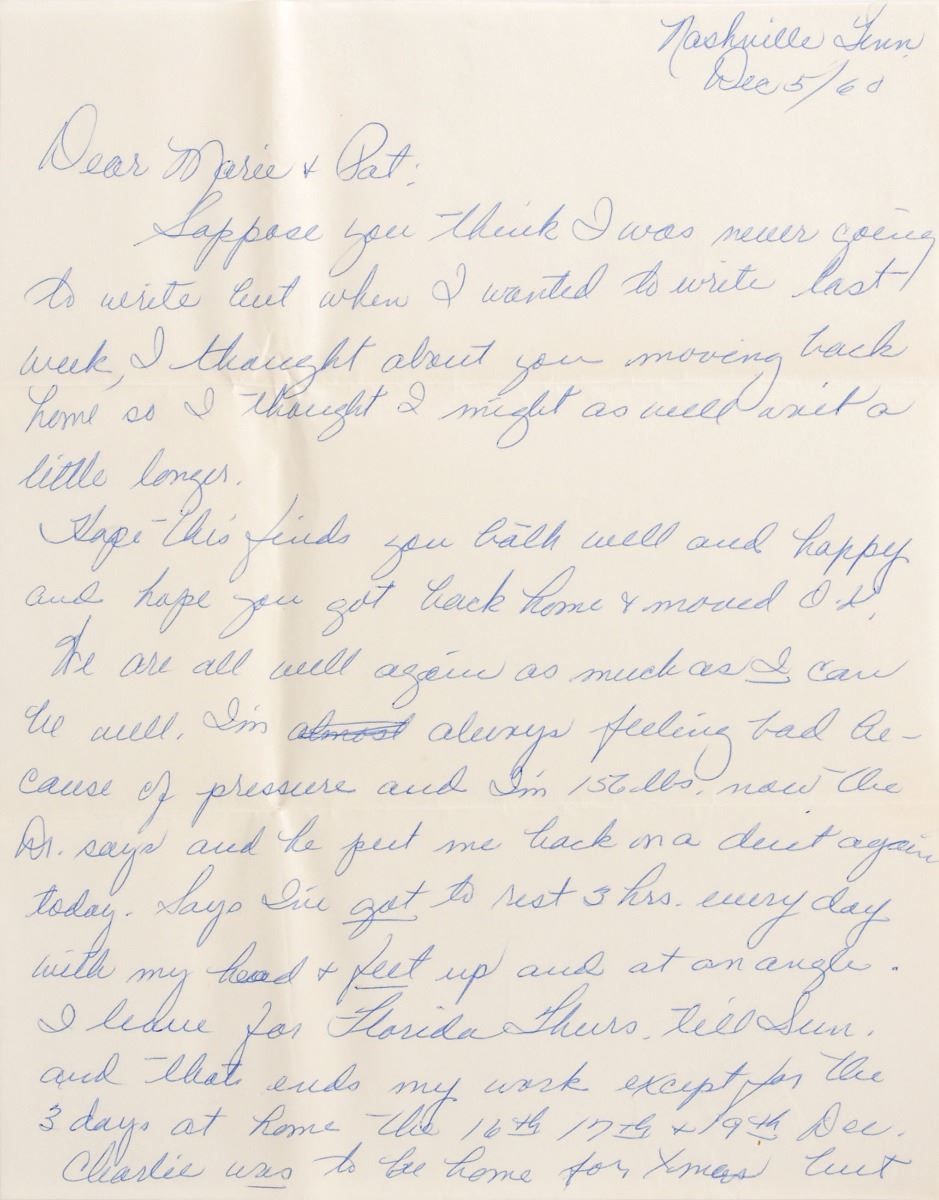 Nashville Tenn
Dec 5/60
Dear Marie & Pat:
Suppose you think I was never going
to write but when I wanted to write last
week, I thought about you moving back
home so I thought I might as well wait a
little longer.
Hope this finds you both well and happy
and hope you got back home & moved O.K.
We are all well again as much as I can
be well. I'm almost always feeling bad be-
cause of pressure and I'm 156 lbs. now the
Dr. says and he put me back on a diet again
today. Says I've got to rest 3 hrs. every day
with my head & feet up and at an angle.
I leave for Florida Thurs. till Sun.
and thats ends my work except for the
3 days at home the 16th 17th & 19th Dec.
Charlie was to be home for Xmas but